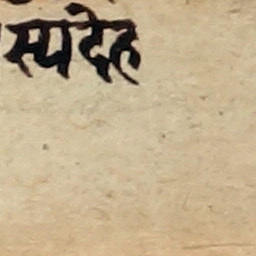 स्यदेह